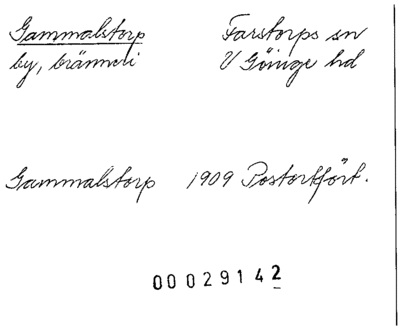 Gammalstorp Farstorps sn
by, bränneri V Göinge hd
Gammalstorp 1909 Postortfört.
00029142